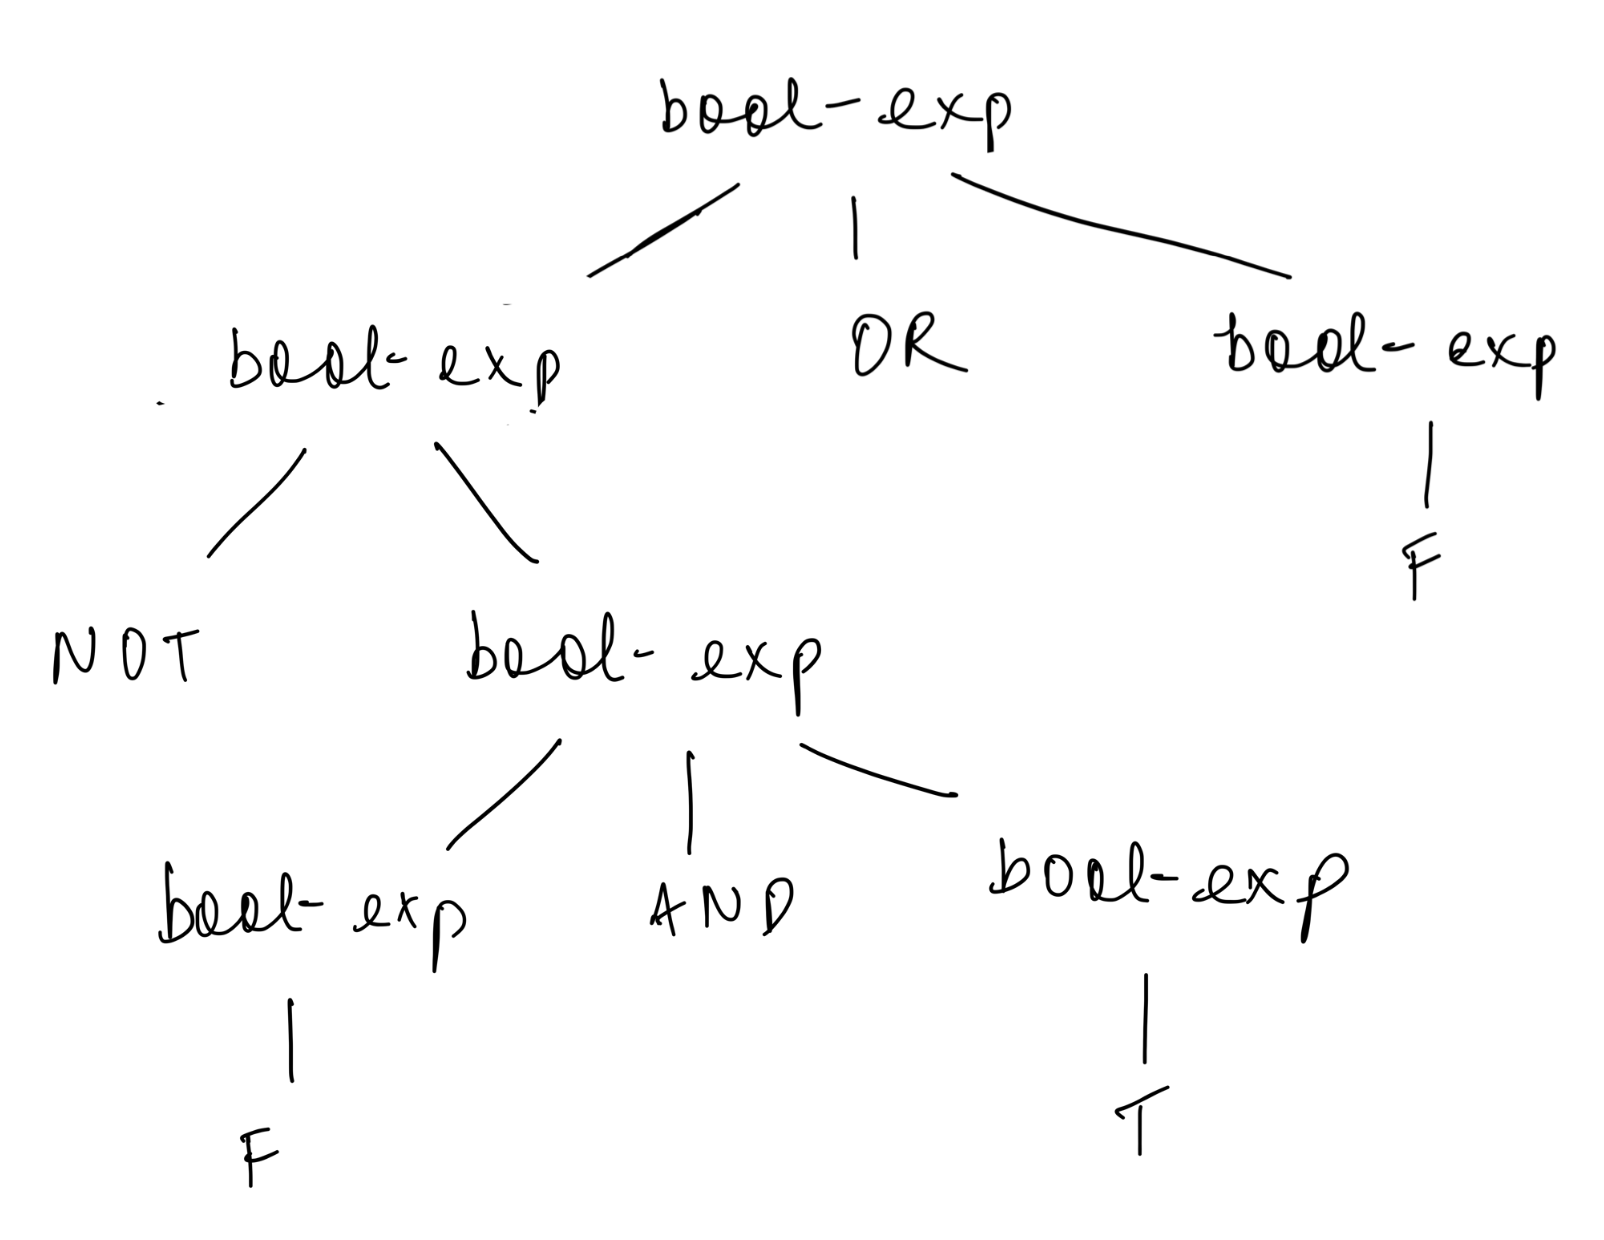 bool-exp
bool-exp OR bool-exp
F
NOT bool-exp
bool-exp AND bool-exp
T
F